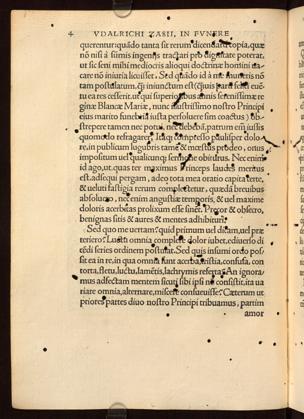 4 VDALRICHI ZASII, IN FVNERE
querentur: quādo tanta sit rerum dicendarū copia, quæ
nō nisi à summis ingeniis tractari pro dignitate poterat,
ut sic seni mihi mediocris alioqui doctrinæ homini ua-
care nō iniuria licuisset. Sed quādo id à me muneris nō
tam postulatum, q̄ iniunctum est
ea res cesserit, ut qui superioribus annis serenissimæ re-
ginæ Blancæ Mariæ, nunc illustrissimo nostro Principi
eius marito funebria iusta persoluere sim coactus) ob-
strepere tamen nec potui, nec debui, patrum em̄ iussis
quomodo refragarer? Iuuat compresso paulisper dolo-
re, in publicum lugubris tamē & mœstus prodeo, orsus
impositum uel qualicunq; sermone obiturus. Nec enim
id ago, ut, quas ter maximus Princeps laudes meritus
est, adsequi pergam, adeo tota mea oratio capita certe,
& ueluti fastigia rerum complectetur, quædā breuibus
absoluero, nec enim angustiæ temporis, & uel maxime
doloris acerbitas prolixum esse sinit. Precor & obsecro,
benignas sitis & aures & mentes adhibituri.
Sed quo me uertam? quid primum uel dicam, uel præ-
teriero? Luctu omnia complet dolor iubet, e diuerso di
cēdi series ordinem postulat. Sed quis insimi ordo pos-
sit ea in re, in qua omnia sunt acerba, tristia, confusa, con
torta, fletu, luctu, lamētis, lachrymis referta? An ignora
mus adfectam mentem sicuti sibi ipsi nō consistit, ita ua
riare omnia, alternare, miscere consueuisse? Cæterum ut
priores partes diuo nostro Principi tribuamus, partim
amor